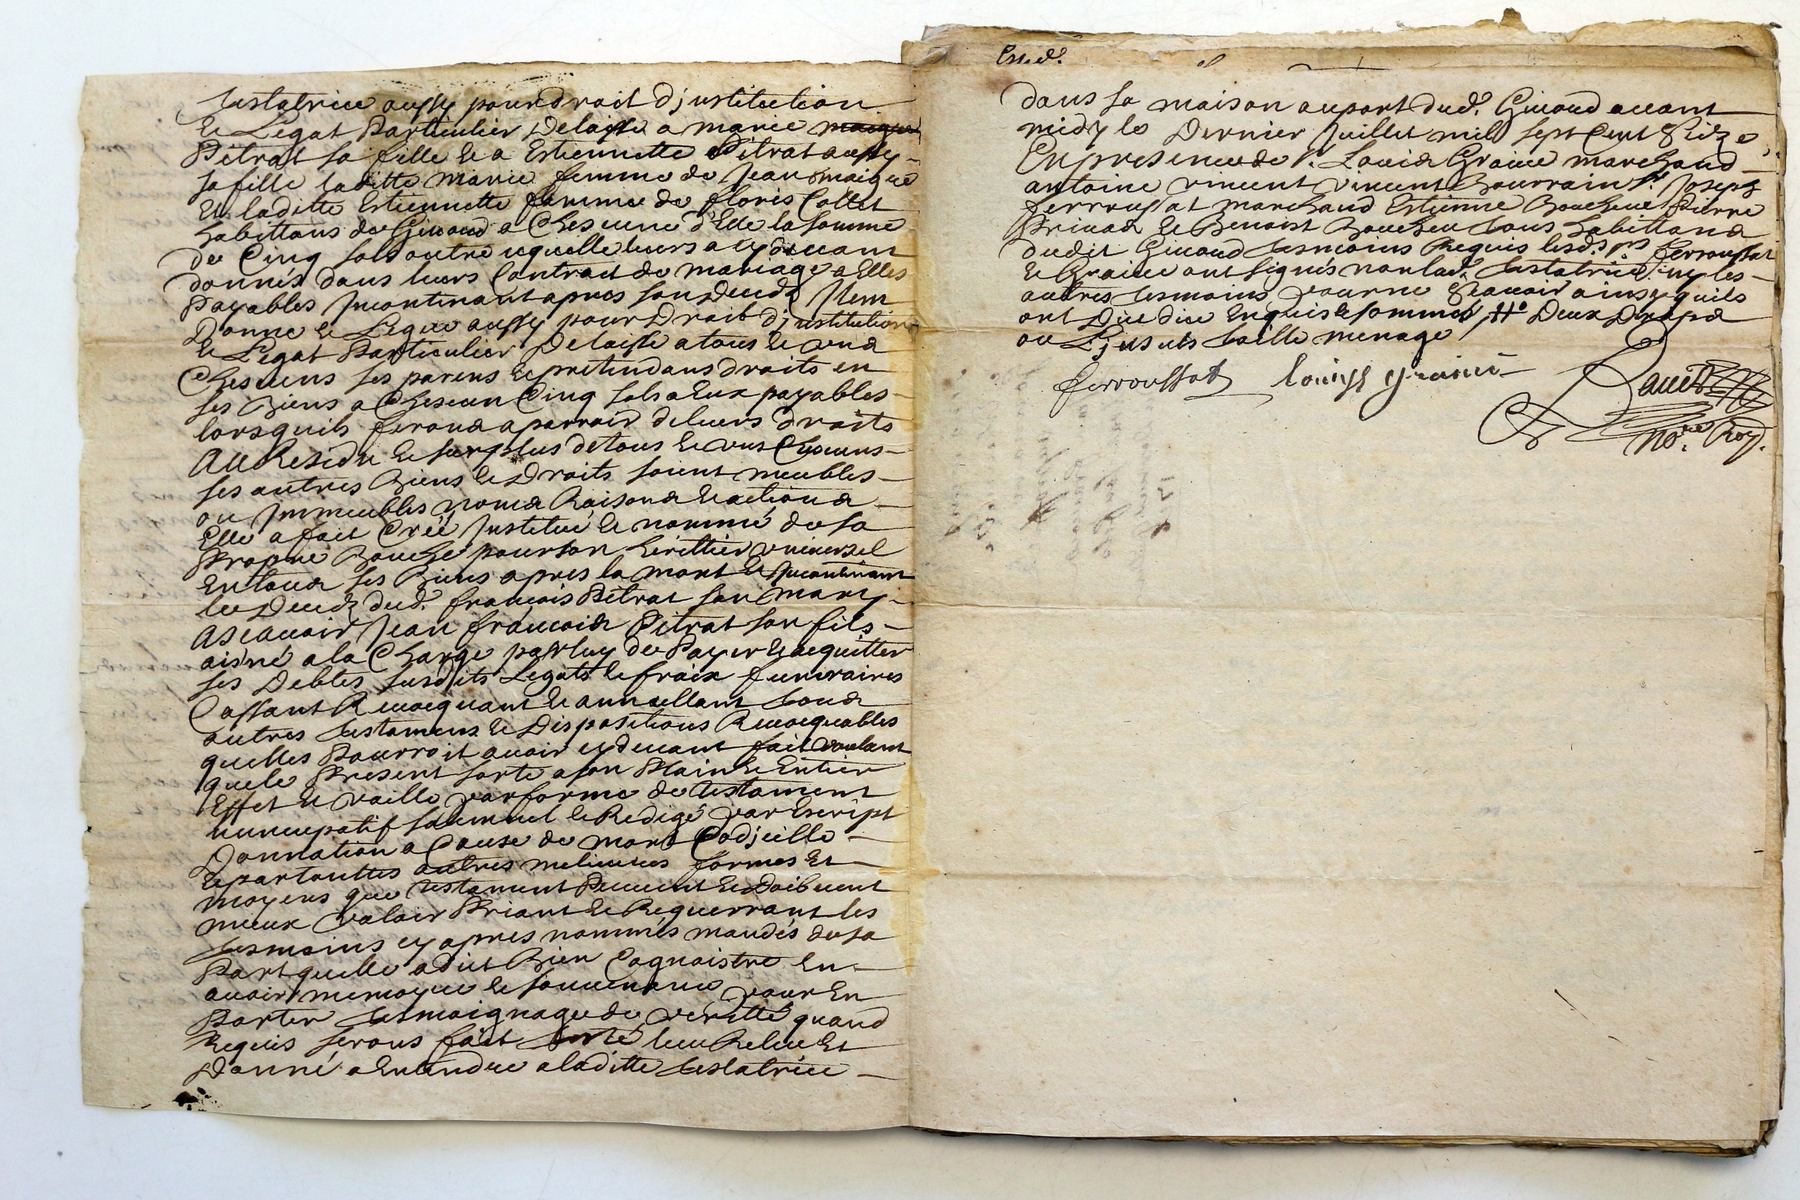 testatrice aussy pour droit d'jnstitution
Et Legat Particulier Delaisse a marie
Pétrat sa fille Et a Estiennette Pétrat aussy
sa fille laditte marie femme de Jean maigre
Et laditte Estiennette femme de floris Collet
habittans de Givord a Chescune d'Elle la somme
de Cinq sols outre ce quelle leurs a cy devant
donnés dans leurs Contrait de mariage a Elles
Payables Jncontinant apres son Decedz Jtem
Donne Et Legue aussy pour Droit d'jnstitution
Et Legat Particulier Delaisse a tous Et vns
Chescuns ses parens Et prétendans droits en
ses Biens a Chescun Cinq sols a Eux payables
lorsquils feronts aparroir de leurs droits
Au Residu Et surplus de tous Et vns Chescuns
ses autres Biens Et Droits soient meubles
ou Jmmeubles noms Raisons Et actions
Elle a fait Créé Jnstitué Et nommé de sa
Propre Bouche pour son hérittier vniversel
En tous ses Biens apres la mort Et Jncontinant
le Decedz dud. françois Pétrat son mary
Ascavoir Jean francois Pétrat son fils
aisné a la Charge par luy de Payer Et acquitter
ses Debtes susdits Legats Et fraix funeraires
Cassant Revocquant Et annullant tous
autres testamens Et Dispositions Revocquables
quelles Pourroit avoir cy devant fait voulant
que le Present sorte a son Plain Et Entier
Effet Et vaille par forme de testament
nuncupatif solemnel Et Redigé par Escript
Donnation a Cause de mort Codjcille
Et partouttes autres melieures formes Et
moyens que testament Peuvent Et Doibvent
mieux valoir Priant Et Requerrant les
tesmoins cy apres nommés mandés de sa
Part quelle a dit Bien Cognoistre En
avoir memoyre Et souvenance pour En
Porter tesmoignage de veritté quand
Requis serons fait leu Releu Et
Donné a Entendre a laditte testatrice
dans sa maison au port dud. Givord avant
midy le Dernier Juillet mil sept Cent seize
En presence de sr. Louis Graine marchand
antoine vincent vincent Bourrain sr. Joseph
ferroussat marchand Estienne Boucheu Pierre
Privas Et Benoist Boucheu tous habittans
dudit Givord tesmoins Requis lesd. srs ferroussat
Et Graine ont signés non lad. testatrice ny les
autres tesmoins pour ne scavoir ainsy quils
ont Dit dice Enquis Et sommés Deux Draps
ou Ljnsuls toille menage
ferroussat louys graine
nore. Roy.